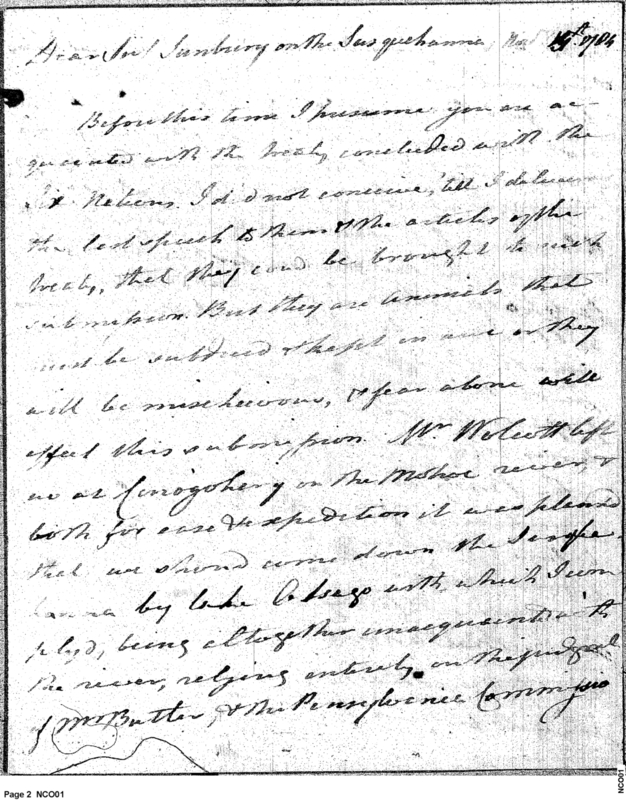 Dear Sir/ Sunbury on the Susquehanna, Nov 19th 1784
Before this time I presume you are ac-
quainted with the treaty concluded with the
Six Nations. I did not conceive, till I deliver
the last speech to them & the articles of the
treaty, that they could be brought to such
submission. But they are animals that
must be subdued & kept in awe or they
will be mischeivous, & fear alone will
effect this submission. Mr. Wolcott left
us at Conogohery on the Mohoc river, &
both for ease & expedition it was planned
that we should come down the Susque-
hanna by lake Otsego with which I com
plyd, being altogether unacquainted with
the river, relying entirely on the judgment
of Mr Butler, & the Pensylvania Commissio
Page 2 NCO01
NCO01